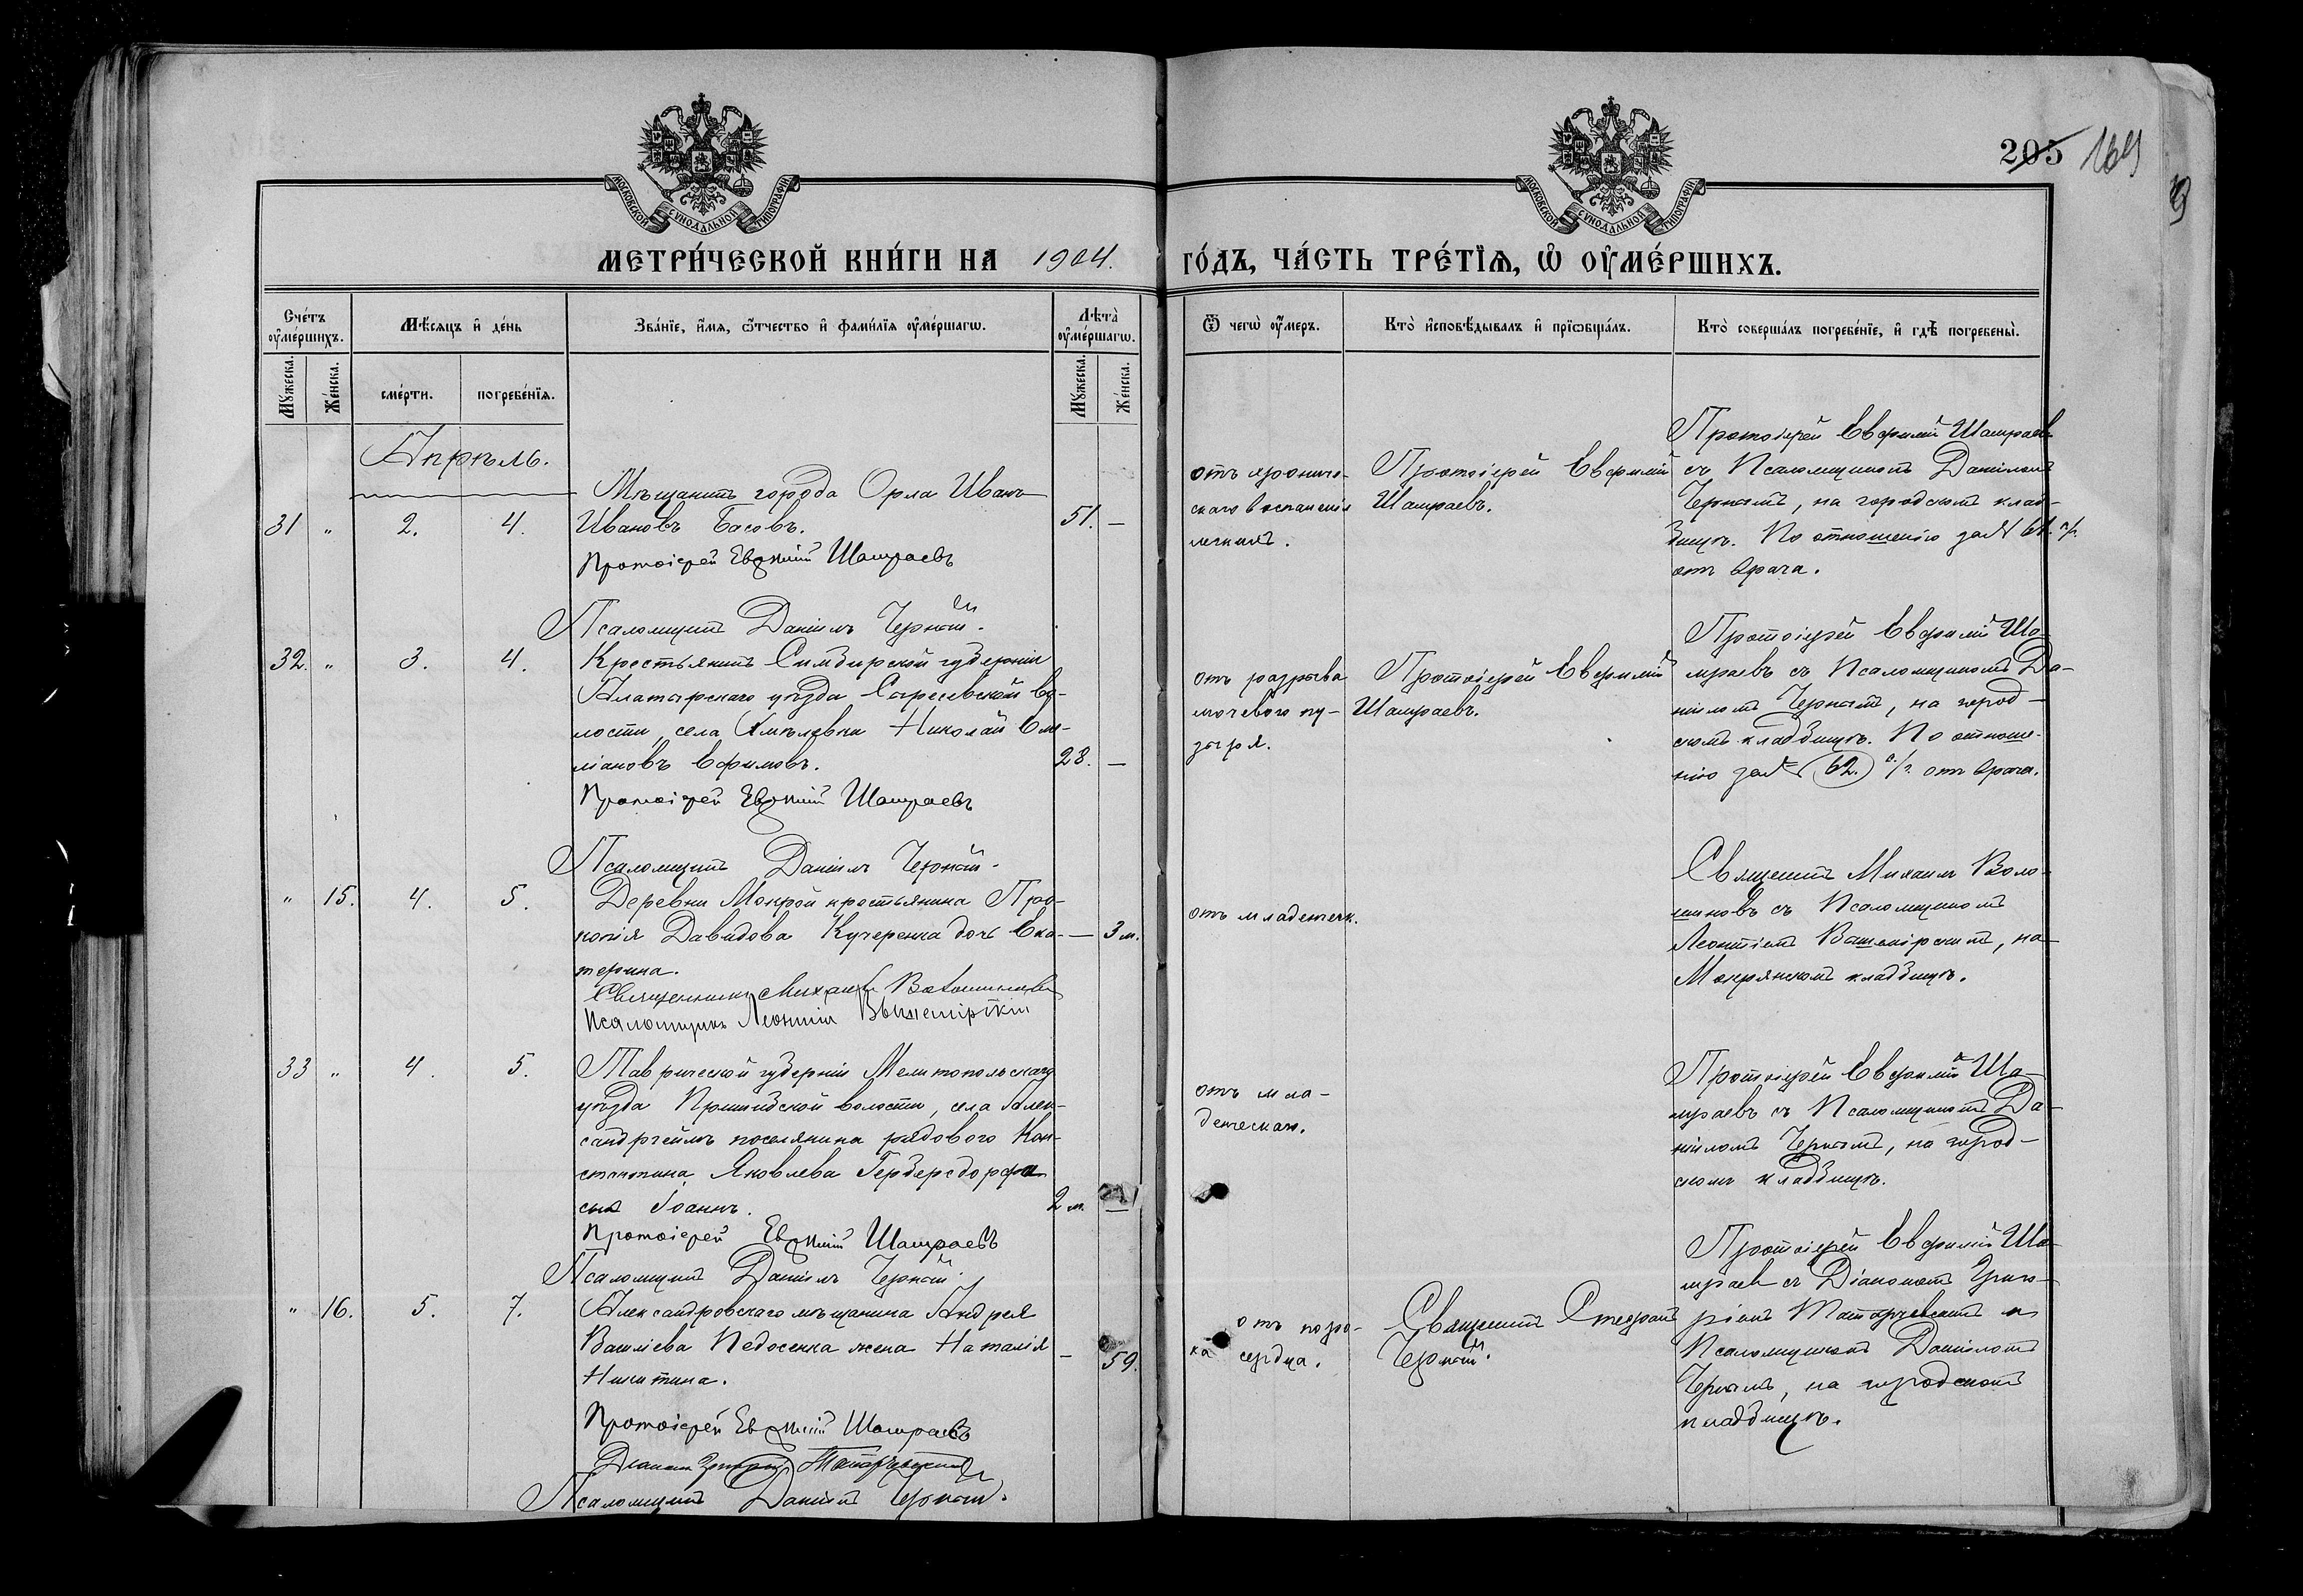 205 169
МОСКОВСКОЙ СУНОДАЛЬНОЙ ТИПОГРАФІИ.
МОСКОВСКОЙ СУНОДАЛЬНОЙ ТИПОГРАФІИ.
МЕТРИ́ЧЕСКОЙ КНИ́ГИ НА 1904.
ГО́ДЪ, ЧА́СТЬ ТРЕ́ТІѦ, Ѡ҆ ОУ҆МЕ́РШИХЪ.
Сче́тъ оу҆ме́ршихъ.
Мѣ́сяцъ и҆ де́нь
Зва́нїе, и҆́мя, ѻ҆́тчество и҆ фами́лїя оу҆ме́ршагѡ.
Лѣта̀ оу҆ме́ршагѡ.
Ѿ чегѡ̀ оу҆́меръ.
Кто̀ и҆сповѣ́дывалъ и҆ прїѡбща́лъ.
Кто̀ соверша́лъ погребе́нїе, и҆ гдѣ̀ погребены̀.
Мꙋ́жеска.
Же́нска.
сме́рти.
погребе́нїя.
Мꙋ́жеска.
Же́нска.
Апрѣль.
31 " 2. 4.
Мѣщанинъ города Орла Иванъ
Ивановъ Басовъ.
51. —
Протоіерей Евѳимій Шамраевъ
Псаломщикъ Даніилъ Черный.
отъ хрониче-
скаго воспаленія
легкихъ.
Протоіерей Евфимій
Шамраевъ.
Протоіерей Евфимій Шамраевъ
съ Псаломщикомъ Даніиломъ
Чернымъ, на городскомъ клад-
бищѣ. По отношенію за № 61. с/г.
отъ врача.
32. " 3. 4.
Крестьянинъ Симбирской губерніи
Алатырскаго уѣзда Сыресевской во-
лости, села Николай Еме-
ліановъ Ефимовъ.
28. —
Протоіерей Евѳимій Шамраевъ
Псаломщикъ Даніилъ Черный.
отъ разрыва
мочевого пу-
зыря.
Протоіерей Евфимій
Шамраевъ.
Протоіерей Евфимій Ша-
мраевъ съ Псаломщикомъ Да-
ніиломъ Чернымъ, на город-
скомъ кладбищѣ. По отноше-
нію за № 62. с/г. отъ врача.
" 15. 4. 5.
Деревни Мокрой крестьянина Про-
копія Давидова Кучеренка дочь Ека-
терина.
— 3 м.
Священникъ Михаилъ Волошиновъ
Псаломщикъ Леонтій Вышемірскій
отъ младенческ.
Священникъ Михаилъ Воло-
шиновъ съ Псаломщикомъ
Леонтіемъ Вышемірскимъ, на
Мокрянскомъ кладбищѣ.
33 " 4. 5.
Таврической губерніи Мелитопольскаго
уѣзда Пришибской волости, села Алек-
сандргеймъ поселянина рядового Кон-
стантина Яковлева Гердерсдорфа
сынъ Іоаннъ.
2 м. —
Протоіерей Евѳимій Шамраевъ
Псаломщикъ Даніилъ Черный.
отъ мла-
денческаго.
Протоіерей Евфимій Ша-
мраевъ съ Псаломщикомъ Да-
ніиломъ Чернымъ, на город-
скомъ кладбищѣ.
" 16. 5. 7.
Александровскаго мѣщанина Андрея
Василіева Недосенка жена Наталія
Никитина.
— 59.
Протоіерей Евѳимій Шамраевъ
Діаконъ Григорій Татарчевскій
Псаломщикъ Даніилъ Черный.
отъ поро-
ка сердца.
Священникъ Стефанъ
Черный.
Протоіерей Евфимій Ша-
мраевъ съ Діакономъ Григо-
ріемъ Татарчевскимъ и
Псаломщикомъ Даніиломъ
Чернымъ, на городскомъ
кладбищѣ.